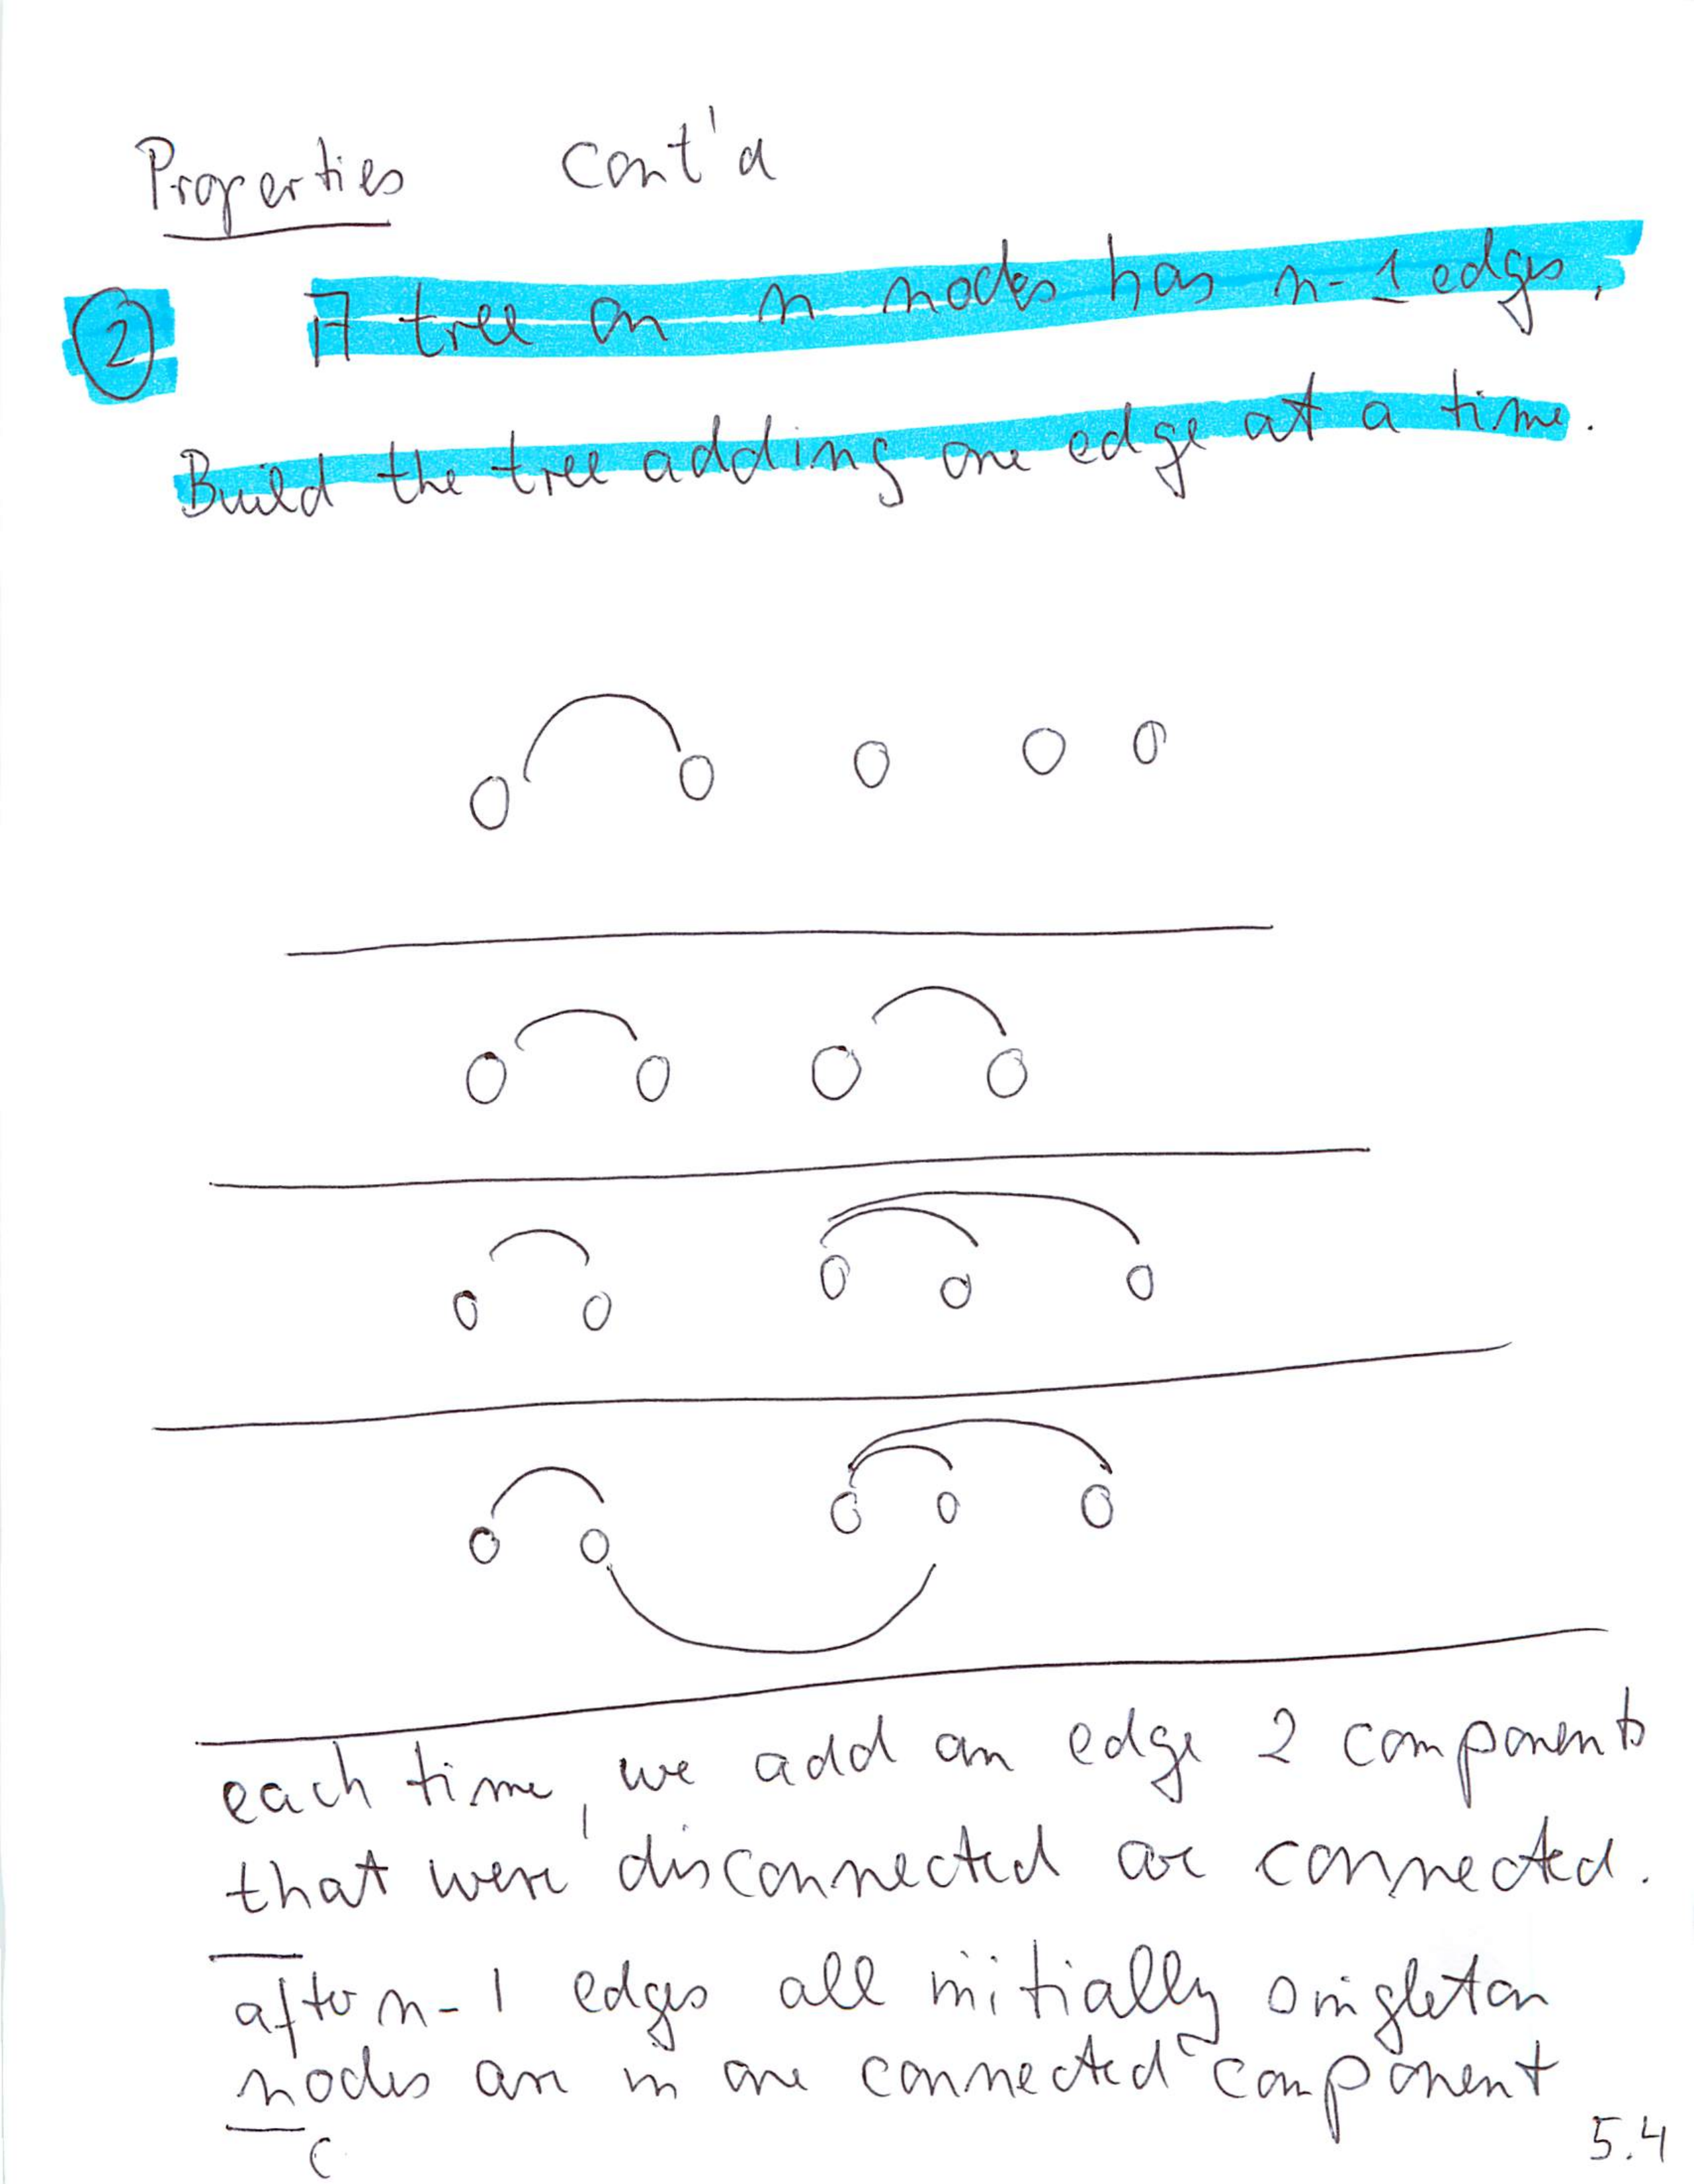 Properties cont'd
② A tree on n nodes has n-1 edges.
Build the tree adding one edge at a time.
each time, we add an edge 2 components
that were disconnected are connected.
after n-1 edges all initially singleton
nodes are in one connected component
5.4